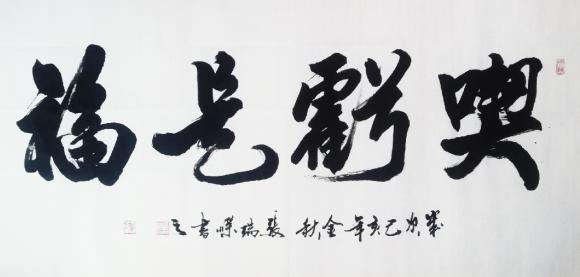 喫虧是福
歲次己亥年金秋 瑞書之